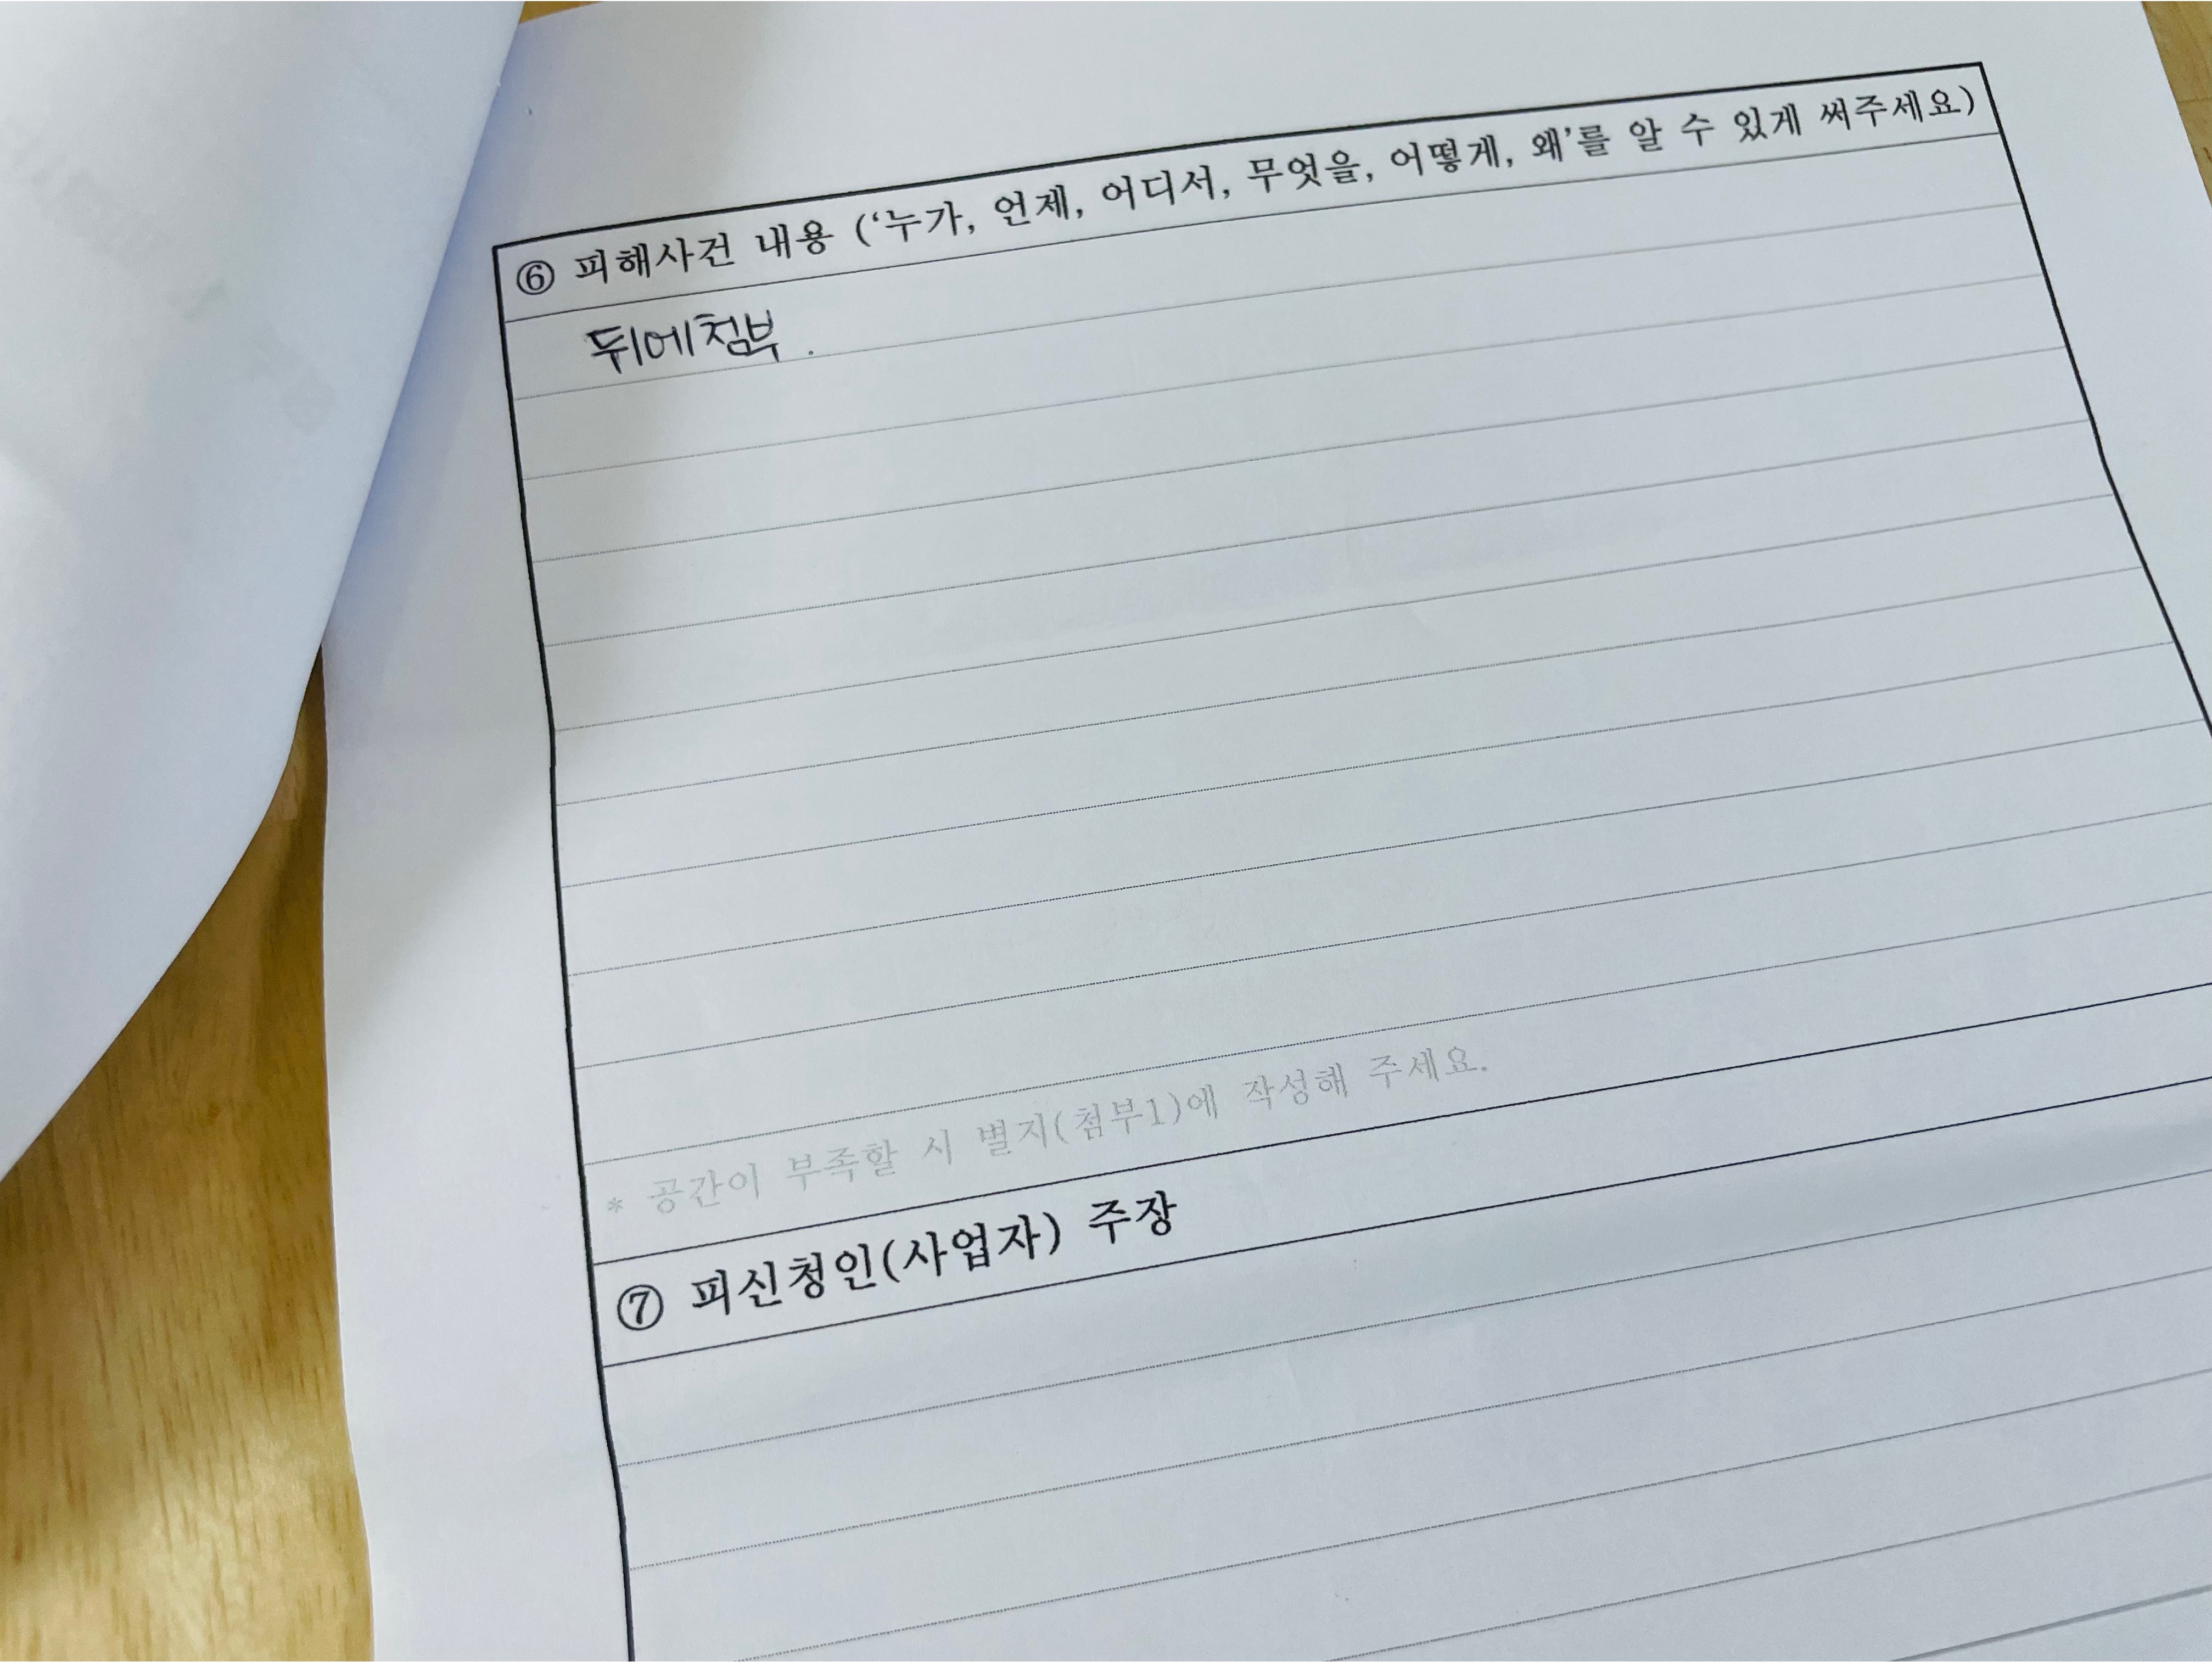 ⑥ 피해사건 내용 (‘누가, 언제, 어디서, 무엇을, 어떻게, 왜’를 알 수 있게 써주세요)
뒤에첨부.
* 공간이 부족할 시 별지(첨부1)에 작성해 주세요.
⑦ 피신청인(사업자) 주장